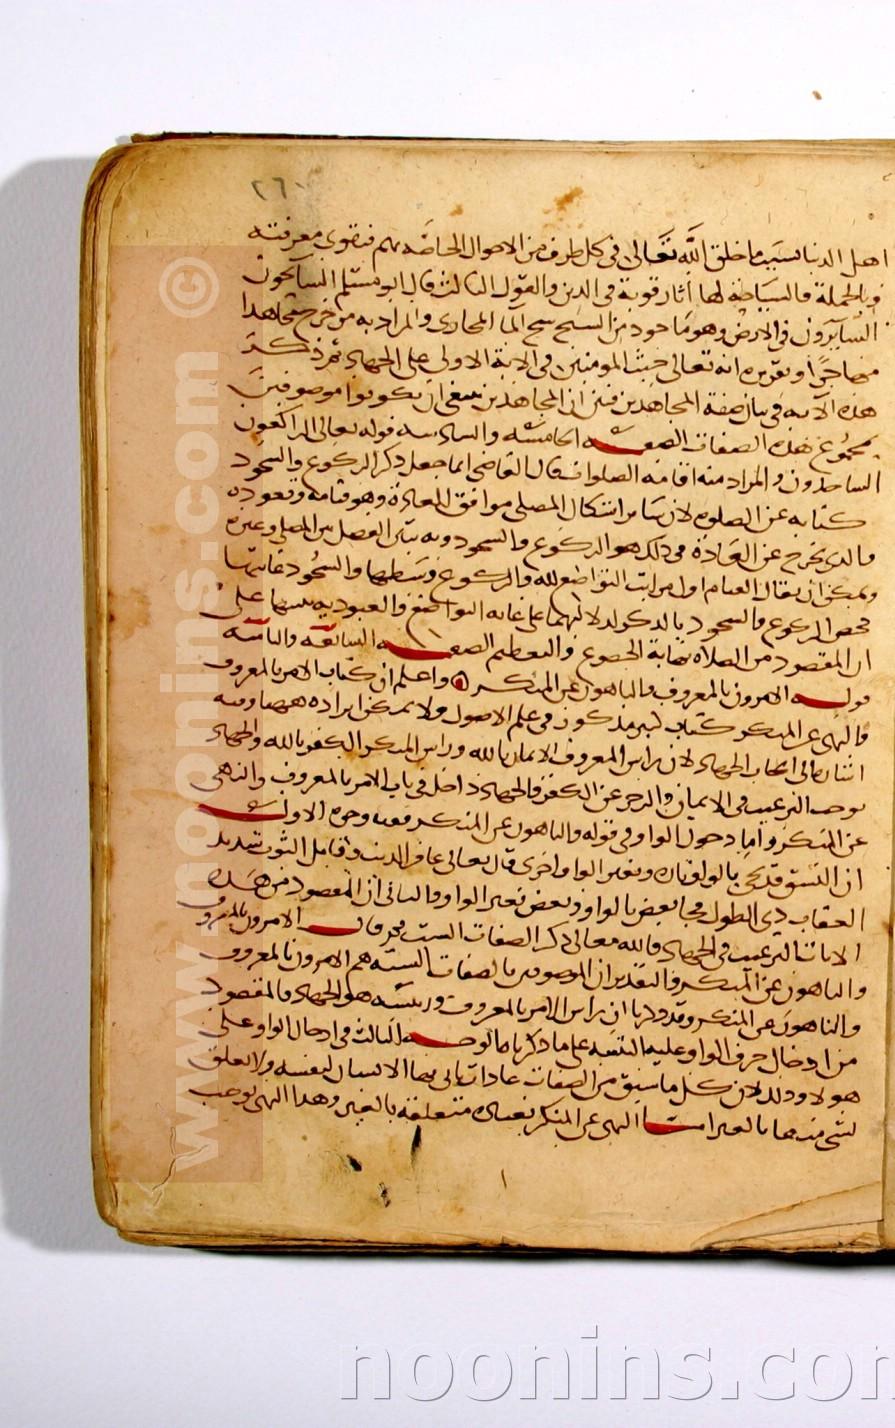 ٢٦٠
اهل الدنيا بسبب ما خلق الله تعالى فى كل طرف من الاحوال الخاصه بهم فتقوى معرفته
وبالجملة فالسياحة لها آثار قوية فى الدين والقول الثالث قال ابو مسلم السايحون
السايرون فى الارض وهو ماخوذ من السيح سيح الما الجارى والمراد به من خرج مجاهدا
مهاجرا وتقريره انه تعالى حث المومنين فى الاية الاولى على الجهاد ثم ذكر
هذه الآية فى بيان صفة المجاهدين فبين ان المجاهدين ينبغى ان يكونوا موصوفين
بمجموع هذه الصفات الصفه الخامسه والسادسه قوله تعالى الراكعون
الساجدون والمراد منه اقامه الصلوات قال القاضى انما جعل ذكر الركوع والسجود
كنايه عن الصلوه لان ساير اشكال المصلى موافق للعادة وهو قيامه وقعوده
والذى يخرج عن العادة فى ذلك هو الركوع والسجود وبه يتبين الفصل بين المصلى وغيره
ويمكن ان يقال القيام اول مراتب التواضع لله والركوع وسطها والسجود غايتها
فخص الركوع والسجود بالذكر لدلالتهما على غايه التواضع والعبوديه تنبيها على
ان المقصود من الصلاة نهاية الخضوع والتعظيم الصفه السابعه والثامنه
قوله الامرون بالمعروف والناهون عن المنكر واعلم ان كتاب الامر بالمعروف
والنهى عن المنكر كتاب كبير مذكور فى علم الاصول ولا يمكن ايراده ههنا وفيه
اشارة الى ايجاب الجهاد لان راس المعروف الايمان بالله وراس المنكر الكفر بالله والجهاد
يوجب الترغيب فى الايمان والزجر عن الكفر فالجهاد داخل فى باب الامر بالمعروف والنهى
عن المنكر واما دخول الواو فى قوله والناهون عن المنكر ففيه وجوه الاول
ان النسق قد يجى بالواو تارة وبغير الواو اخرى قال تعالى غافر الذنب وقابل التوب شديد
العقاب ذى الطول فجا بعض بالواو وبعض بغير الواو والثانى ان المقصود من هذه
الايات الترغيب فى الجهاد والله تعالى ذكر الصفات الست ثم قال الامرون بالمعروف
والناهون عن المنكر والتقدير ان الموصوفين بالصفات الستة هم الامرون بالمعروف
والناهون عن المنكر وقد ذكرنا ان راس الامر بالمعروف ورئيسه هو الجهاد والمقصود
من ادخال حرف الواو عليه التنبيه على ما ذكرنا الوجه الثالث فى ادخال الواو على
هولا وذلك لان كل ما سبق من الصفات عبادات ياتى بها الانسان لنفسه ولا تعلق
لشى منها بالغير اما النهى عن المنكر فعباده متعلقة بالغير وهذا النهى يوجب
www.noonins.com ©
noonins.com